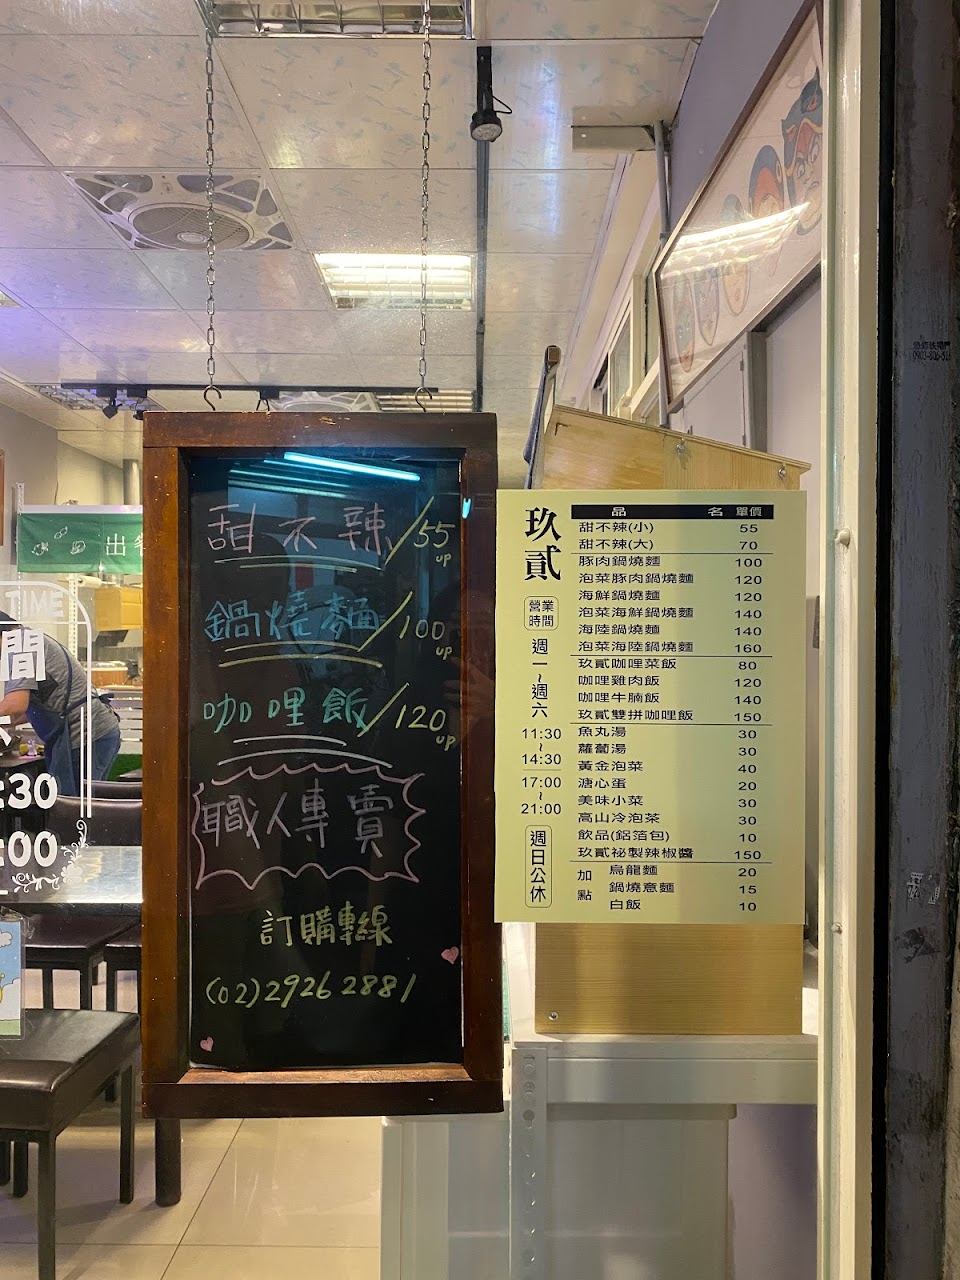 甜不辣/55
up
鍋燒麵/100
up
咖哩飯/120
up
職人專賣
訂購專線
(02)29262881
玖貳
營業時間
週一~週六
11:30
~
14:30
17:00
~
21:00
週日公休
品名 單價
甜不辣(小) 55
甜不辣(大) 70
豚肉鍋燒麵 100
泡菜豚肉鍋燒麵 120
海鮮鍋燒麵 120
泡菜海鮮鍋燒麵 140
海陸鍋燒麵 140
泡菜海陸鍋燒麵 160
玖貳咖哩菜飯 80
咖哩雞肉飯 120
咖哩牛腩飯 140
玖貳雙拼咖哩飯 150
魚丸湯 30
蘿蔔湯 30
黃金泡菜 40
溏心蛋 20
美味小菜 30
高山冷泡茶 30
飲品(鋁箔包) 10
玖貳祕製辣椒醬 150
加點
烏龍麵 20
鍋燒意麵 15
白飯 10
出
TIME
間
:30
:00